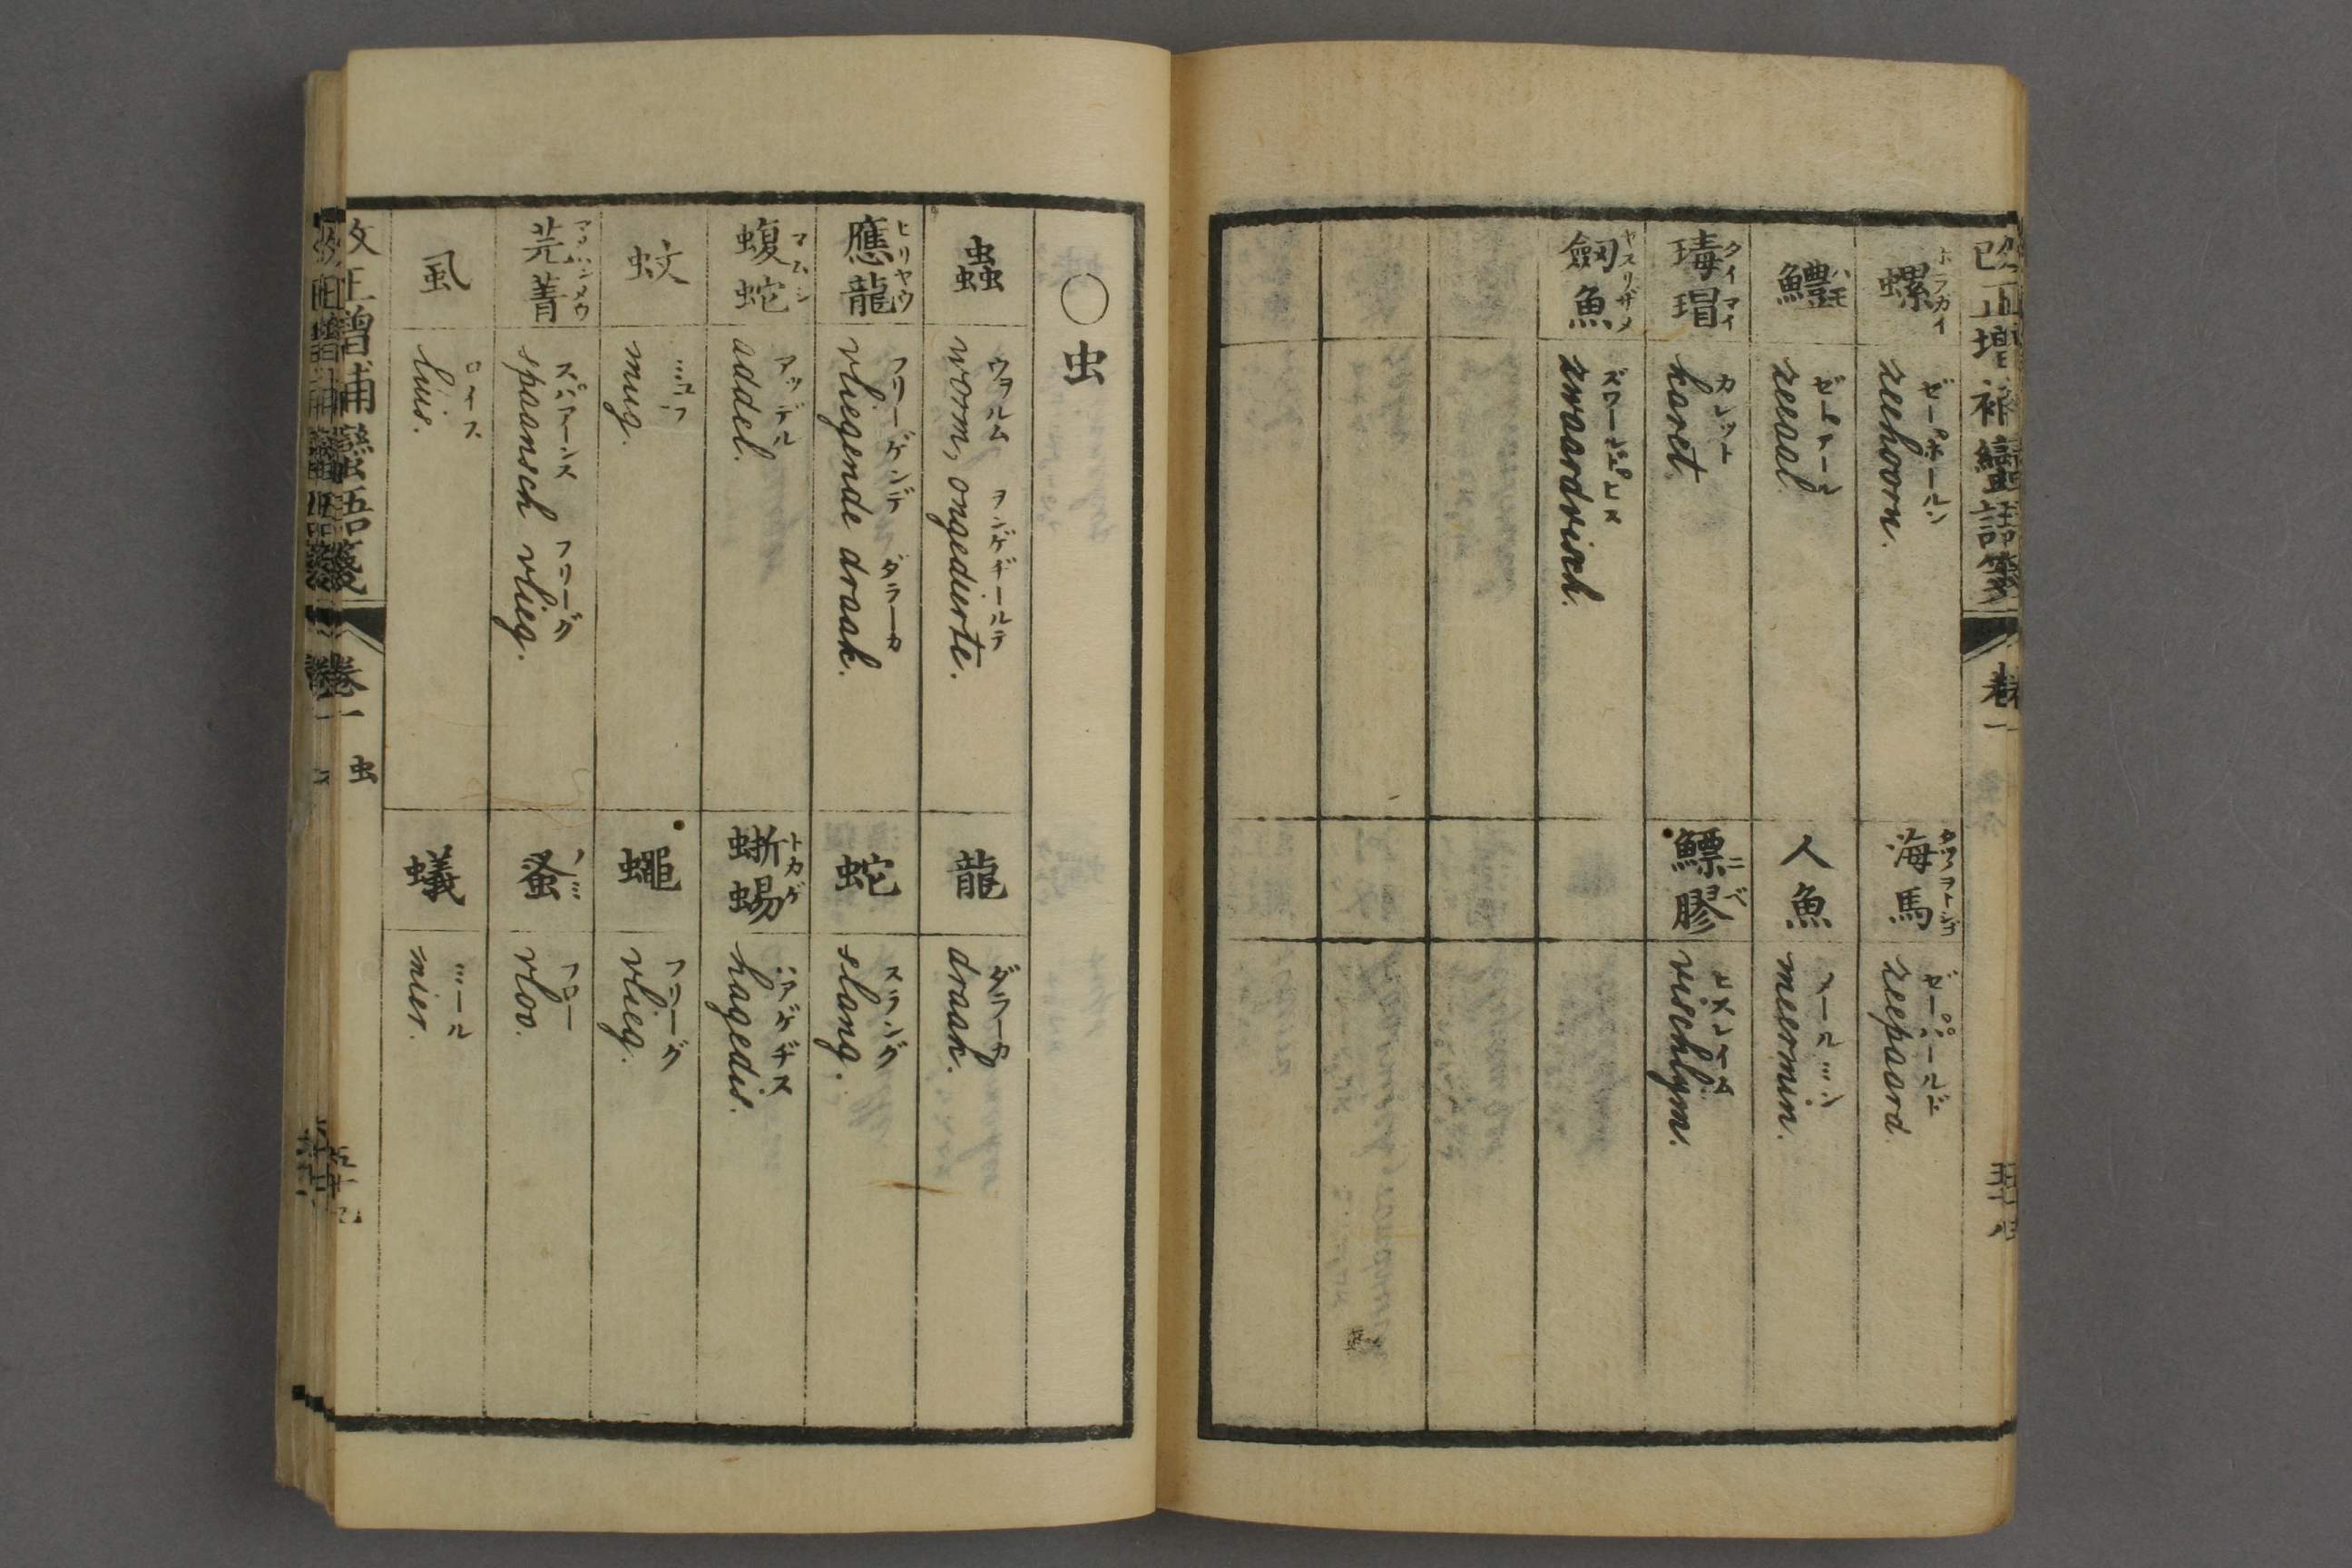 改正增補蠻語箋
卷一
螺 ホラガイ
ゼーホールン
zeehoorn.
海馬 タツノヲトシゴ
ゼーパールド
zeepaard.
鱧 ハモ
ゼーアール
zeeaal.
人魚
メールミン
meermin.
瑇瑁 タイマイ
カレット
karet.
鰾膠 ニベ
vischlym.
劔魚 ヤスリザメ
zwaardvisch.
〇虫
蟲
ウヲルム ヲンゲヂールテ
worm, ongedierte.
龍
ダラーカ
draak.
應龍 ヒリヤウ
フリーゲンデ ダラーカ
vliegende draak.
蛇
スラング
slang.
蝮蛇 マムシ
アッデル
addel.
蜥蜴 トカゲ
ハアゲヂス
hagedis.
蚊
ミュフ
mug.
蠅
フリーグ
vlieg.
芫菁
スパアーンス フリーグ
spaansch vlieg.
蚤 ノミ
フロー
vloo.
虱
ロイス
luis.
蟻
ミール
mier.
改正增補蠻語箋
卷一 虫
五十九